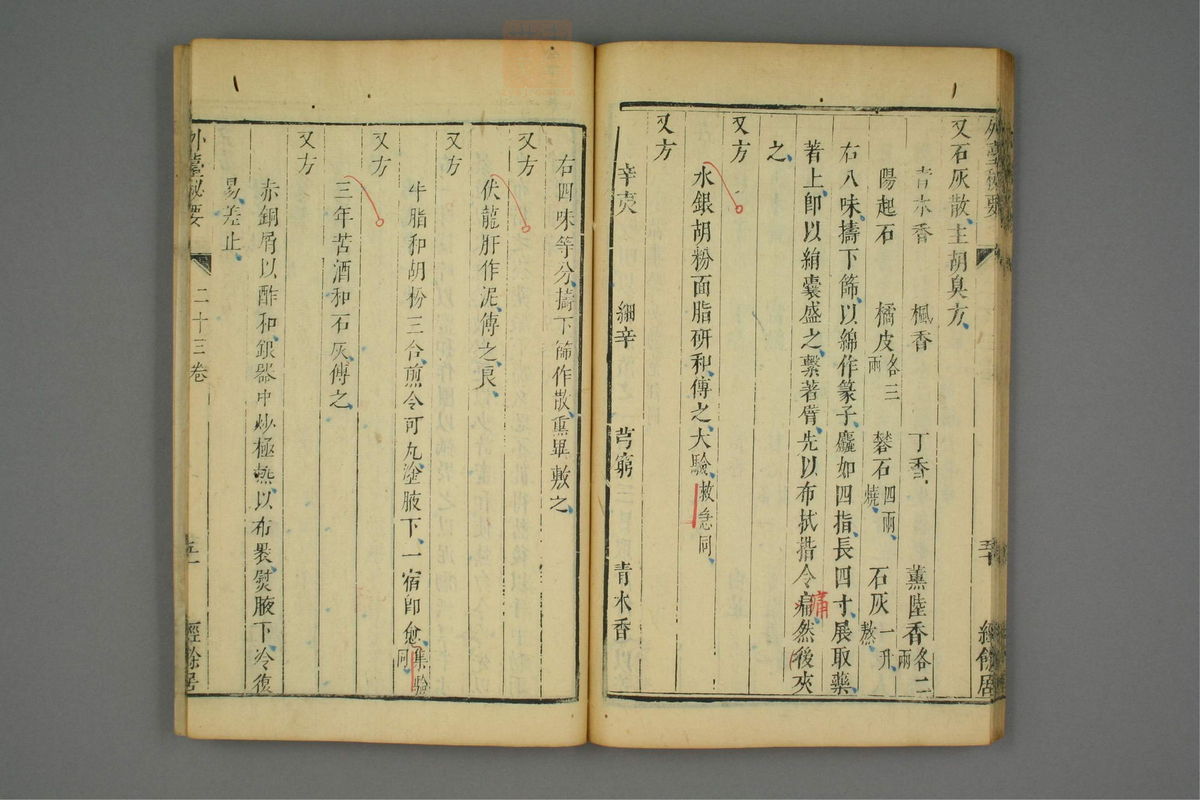 又石灰散主胡臭方
青木香 楓香 丁香 薰陸香各二兩
陽起石 橘皮各三兩 礬石四兩燒 石灰一升熬
右八味擣下篩以綿作篆子麤如四指長四寸展取藥
著上即以絹囊盛之繫著臂先以布拭揩令痛然後夾
痛
之
又方
水銀胡粉面脂研和傅之大驗救急同
又方
辛夷 細辛 芎藭 青木香
外臺秘要
經餘居
右四味等分擣下篩作散熏畢敷之
又方
伏龍肝作泥傅之良
又方
牛脂和胡粉三合煎令可丸塗腋下一宿即愈集驗同
又方
三年苦酒和石灰傅之
又方
赤銅屑以酢和銀器中炒極熱以布裹熨腋下冷復
易差止
外臺秘要 二十三卷 經餘居